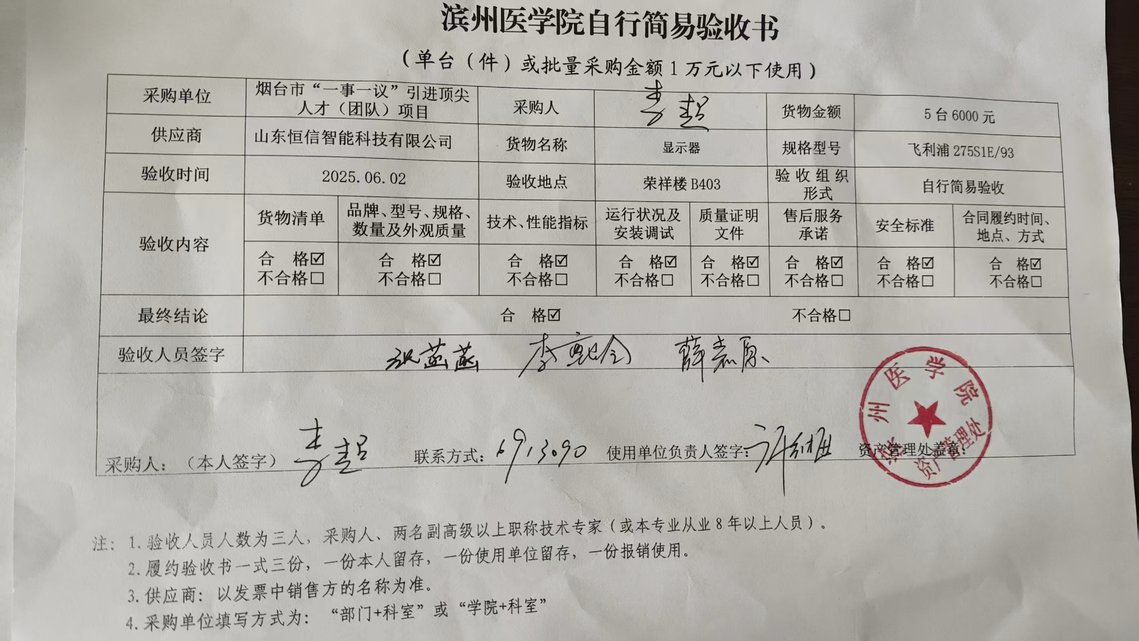 滨州医学院自行简易验收书
（单台（件）或批量采购金额1万元以下使用）
采购单位 烟台市“一事一议”引进顶尖人才（团队）项目 采购人 李超 货物金额 5台6000元
供应商 山东恒信智能科技有限公司 货物名称 显示器 规格型号 飞利浦275S1E/93
验收时间 2025.06.02 验收地点 荣祥楼B403 验收组织形式 自行简易验收
验收内容 货物清单 品牌、型号、规格、数量及外观质量 技术、性能指标 运行状况及安装调试 质量证明文件 售后服务承诺 安全标准 合同履约时间、地点、方式
合 格☑ 合 格☑ 合 格☑ 合 格☑ 合 格☑ 合 格☑ 合 格☑ 合 格☑
不合格☐ 不合格☐ 不合格☐ 不合格☐ 不合格☐ 不合格☐ 不合格☐ 不合格☐
最终结论 合 格☑ 不合格☐
验收人员签字 薛嘉原
采购人：（本人签字） 李超 联系方式：6913090 使用单位负责人签字： 资产管理处盖章：
滨州医学院
资产管理处
注：1.验收人员人数为三人，采购人、两名副高级以上职称技术专家（或本专业从业8年以上人员）。
2.履约验收书一式三份，一份本人留存，一份使用单位留存，一份报销使用。
3.供应商：以发票中销售方的名称为准。
4.采购单位填写方式为：“部门+科室”或“学院+科室”